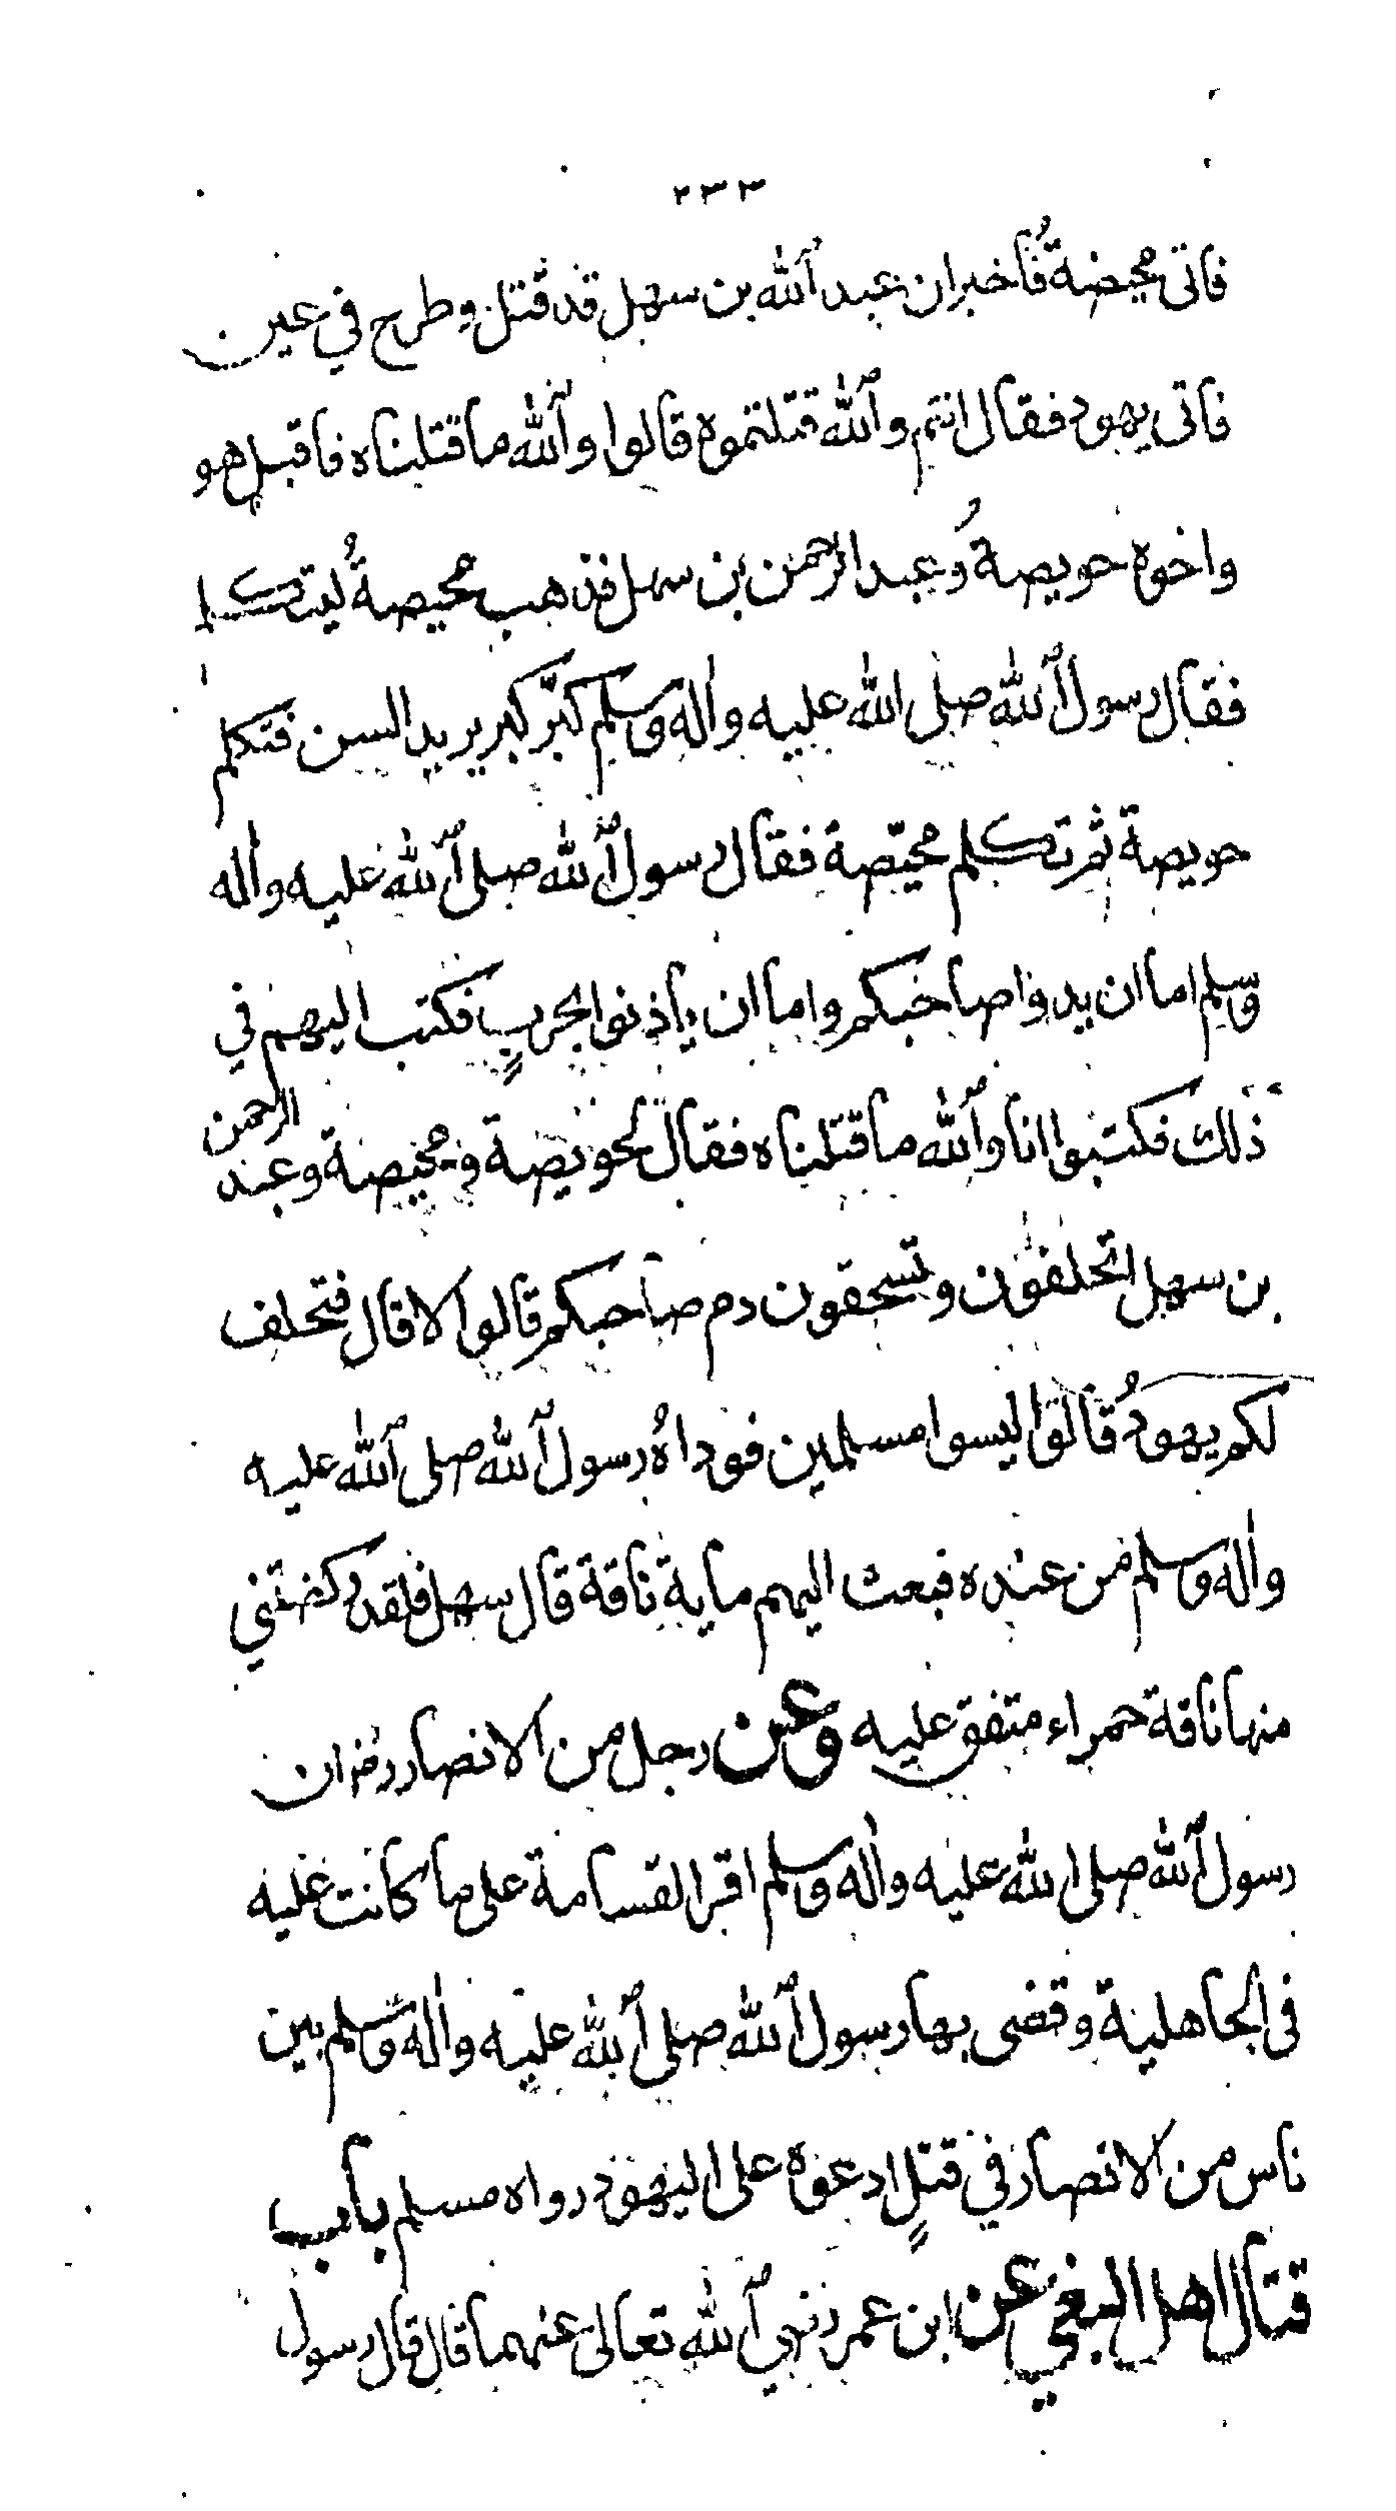 ٢٣٣
فاتى محيصةُ فأخبر ان عبد الله بن سهل قد قُتل وطرح في عين
فاتى يهود فقال انتم والله قتلتموه قالوا والله ما قتلناه فاقبل هو
واخوه حويصةُ وعبد الرحمن بن سهل فذهب محيصةُ ليتكلم
فقال رسول الله صلى الله عليه واله وسلم كبّر كبر يريد السن فتكلم
حويصة ثم تكلم محيّصة فقال رسول الله صلى الله عليه واله
وسلم اما ان يدوا صاحبكم واما ان يأذنوا بحربٍ فكتب اليهم في
ذلك فكتبوا انا والله ما قتلناه فقال لحويصة ومحيصة وعبد الرحمن
بن سهل اتحلفون وتستحقون دم صاحبكم قالوا لا قال فتحلف
لكم يهودُ قالوا ليسوا مسلمين فوداهُ رسول الله صلى الله عليه
واله وسلم من عنده فبعث اليهم ماية ناقة قال سهل فلقد ركضتني
منها ناقة حمراء متفق عليه وعن رجل من الانصار ان
رسول الله صلى الله عليه واله وسلم اقر القسامة على ما كانت عليه
في الجاهلية وقضى بها رسول الله صلى الله عليه واله وسلم بين
ناس من الانصار في قتلٍ ادعوه على اليهود رواه مسلم باب
قتال اهل البغي عن ابن عمر رضي الله تعالى عنهما قال قال رسول